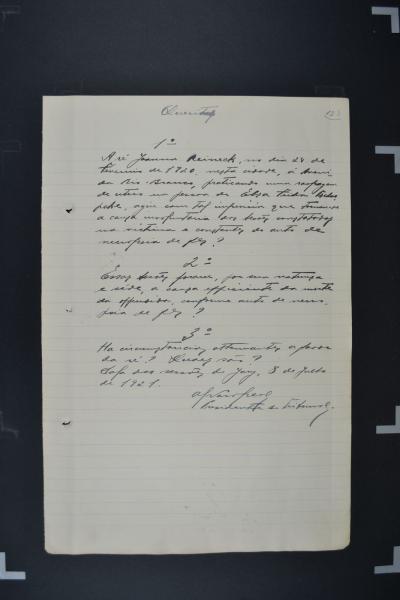 Quesitos
123
1º
A ré Joanna Reineck, no dia 24 de
de 1920, nesta cidade, á Aveni
da Rio Branco, praticando uma raspagem
do utero na pessoa de Elsa
agiu com tal impericia que
a causa involuntaria das lesões constatadas
na victima e constantes do auto de
necropsia de fls ?
2º
Essas lesões foram, por sua natureza
e séde, a causa efficiente da morte
da offendida, conforme auto de necro
psia de fls ?
3º
Ha circumstancias attenuantes a favor
da ré? Quaes são?
Sala das sessões do Jury, 8 de Julho
de 1921.
Presidente do Tribunal.